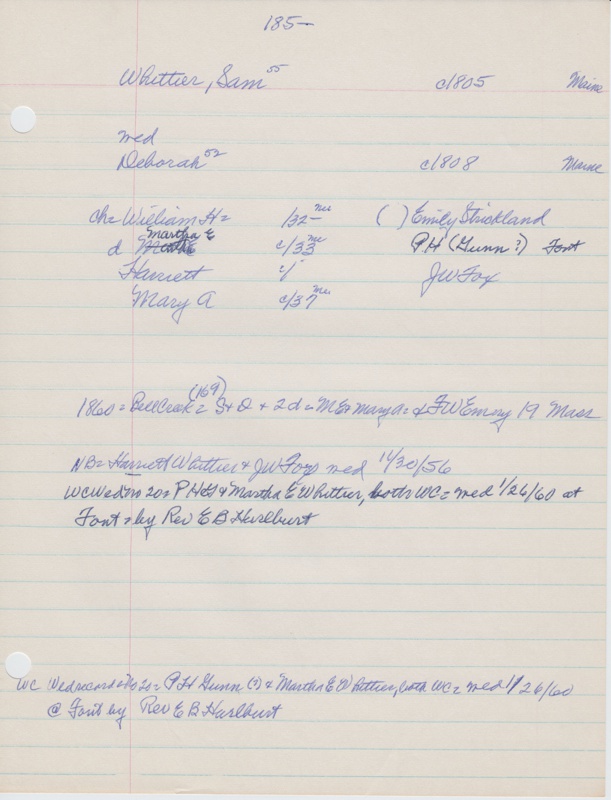 185-
Whittier, Sam 55 c1805 Maine
med
Deborah 52 c1808 Maine
ch= William H= /32- me ( ) Emily Strickland
Martha E
d c/33 me P.H (Gunn?) Font
Harriett c/ JW Fox
Mary A c/37 me
(169)
1860= Bell Creek= S + D + 2d= M E + Mary A= & FW Emery 19 Mass
NB= Harriett Whittier & JW Fox med 11/30/56
WC Wed No 20= P H G & Martha E Whittier, both WC= med 1/26/60 at
Font= by Rev E B Hurlburt
WC Wedrecord= No 20= P H Gunn (?) & Martha E Whittier, both WC= med 1/26/60
@ Font by Rev E B Hurlburt